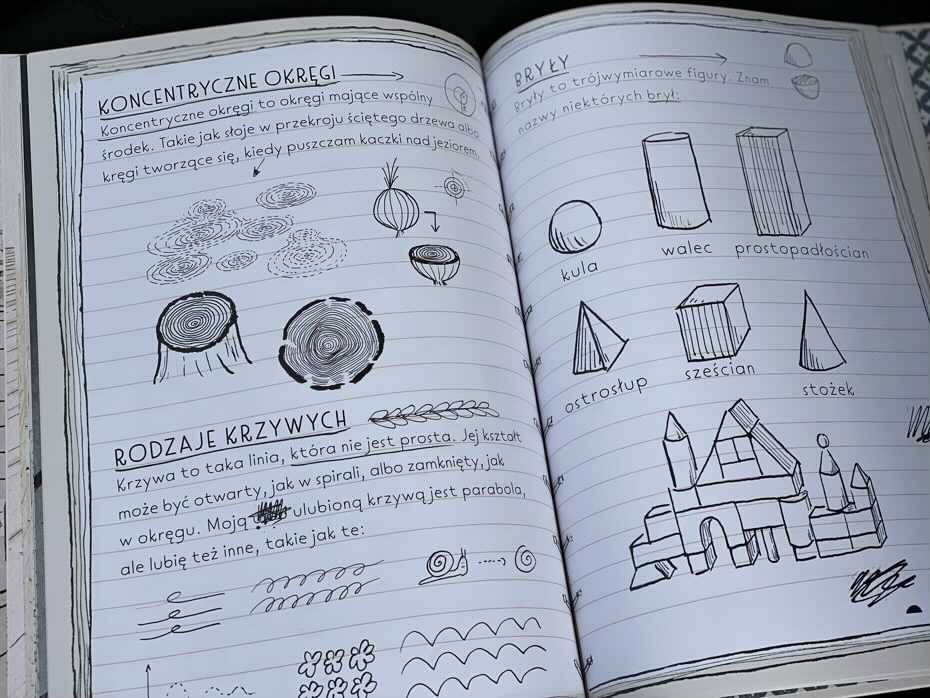 KONCENTRYCZNE OKRĘGI
Koncentryczne okręgi to okręgi mające wspólny
środek. Takie jak słoje w przekroju ściętego drzewa albo
kręgi tworzące się, kiedy puszczam kaczki nad jeziorem.
RODZAJE KRZYWYCH
Krzywa to taka linia, która nie jest prosta. Jej kształt
może być otwarty, jak w spirali, albo zamknięty, jak
w okręgu. Moją ulubioną krzywą jest parabola,
ale lubię też inne, takie jak te:
BRYŁY
Bryły to trójwymiarowe figury. Znam
nazwy niektórych brył:
kula
walec
prostopadłościan
ostrosłup
sześcian
stożek